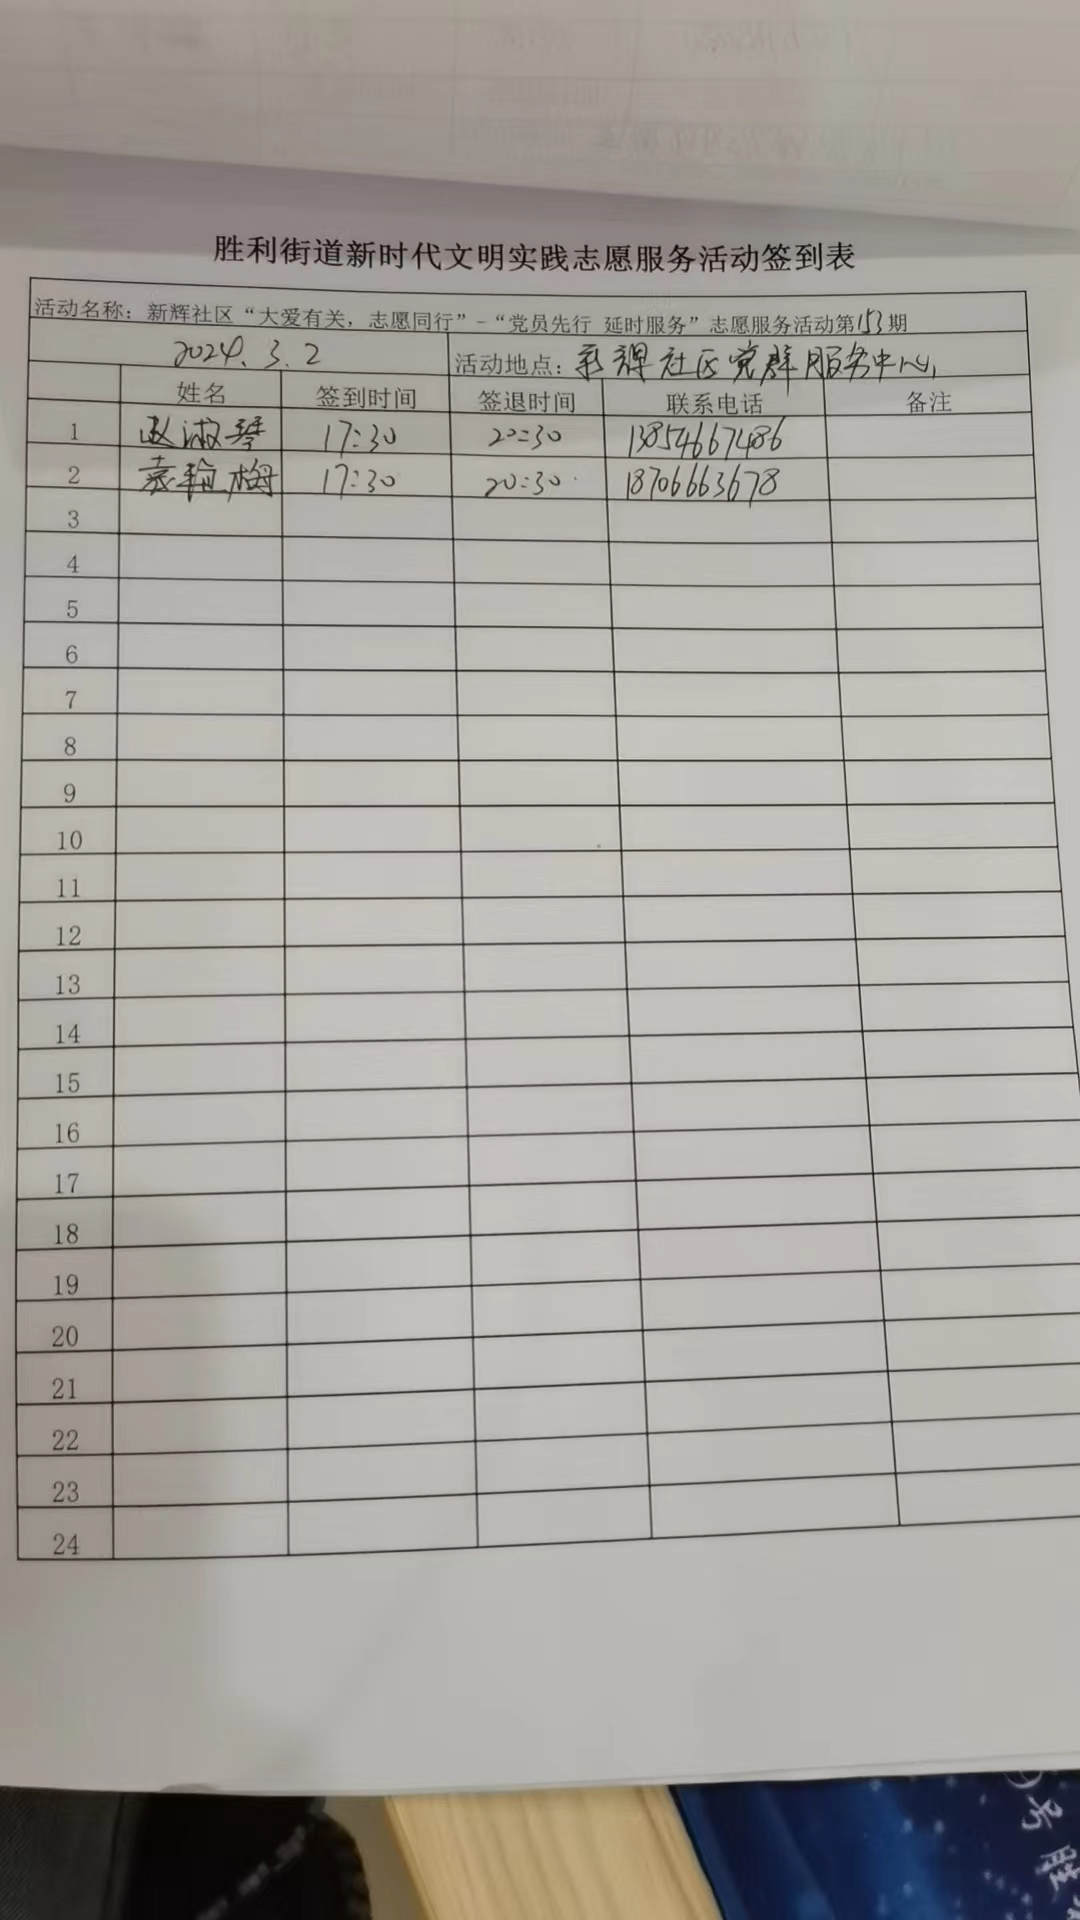 胜利街道新时代文明实践志愿服务活动签到表
活动名称：新辉社区“大爱有关，志愿同行”-“党员先行 延时服务”志愿服务活动第153期
2024.3.2 活动地点：新辉社区党群服务中心
姓名 签到时间 签退时间 联系电话 备注
1 赵淑琴 17:30 20:30 13854667486
2 袁 梅 17:30 20:30 18706663678
3
4
5
6
7
8
9
10
11
12
13
14
15
16
17
18
19
20
21
22
23
24
号
胜